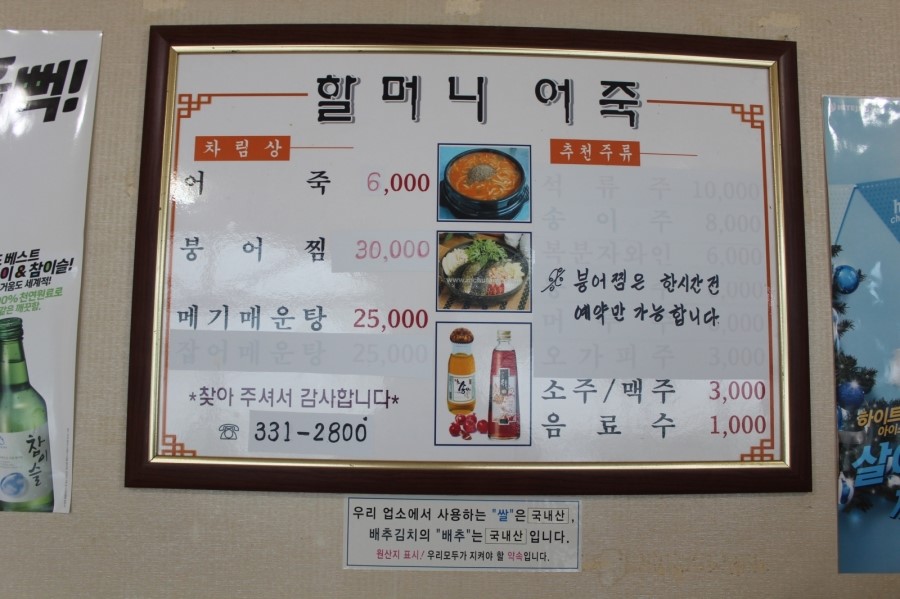 뻑!
할머니 어죽
차림상
추천주류
어죽 6,000
석류주 10,000
송이주 8,000
붕어찜 30,000
복분자와인 6,000
붕어찜은 한시간전
예약만 가능합니다
메기매운탕 25,000
잡어매운탕 25,000
오가피주 3,000
소주/맥주 3,000
음료수 1,000
*찾아 주셔서 감사합니다*
☏ 331-2800
우리 업소에서 사용하는 "쌀"은 국내산,
배추김치의 "배추"는 국내산 입니다.
원산지 표시/ 우리모두가 지켜야 할 약속입니다.
베스트
이 & 참이슬!
거움도 세계적!
00% 천연원료로
같은 깨끗함.
참이슬
하이트